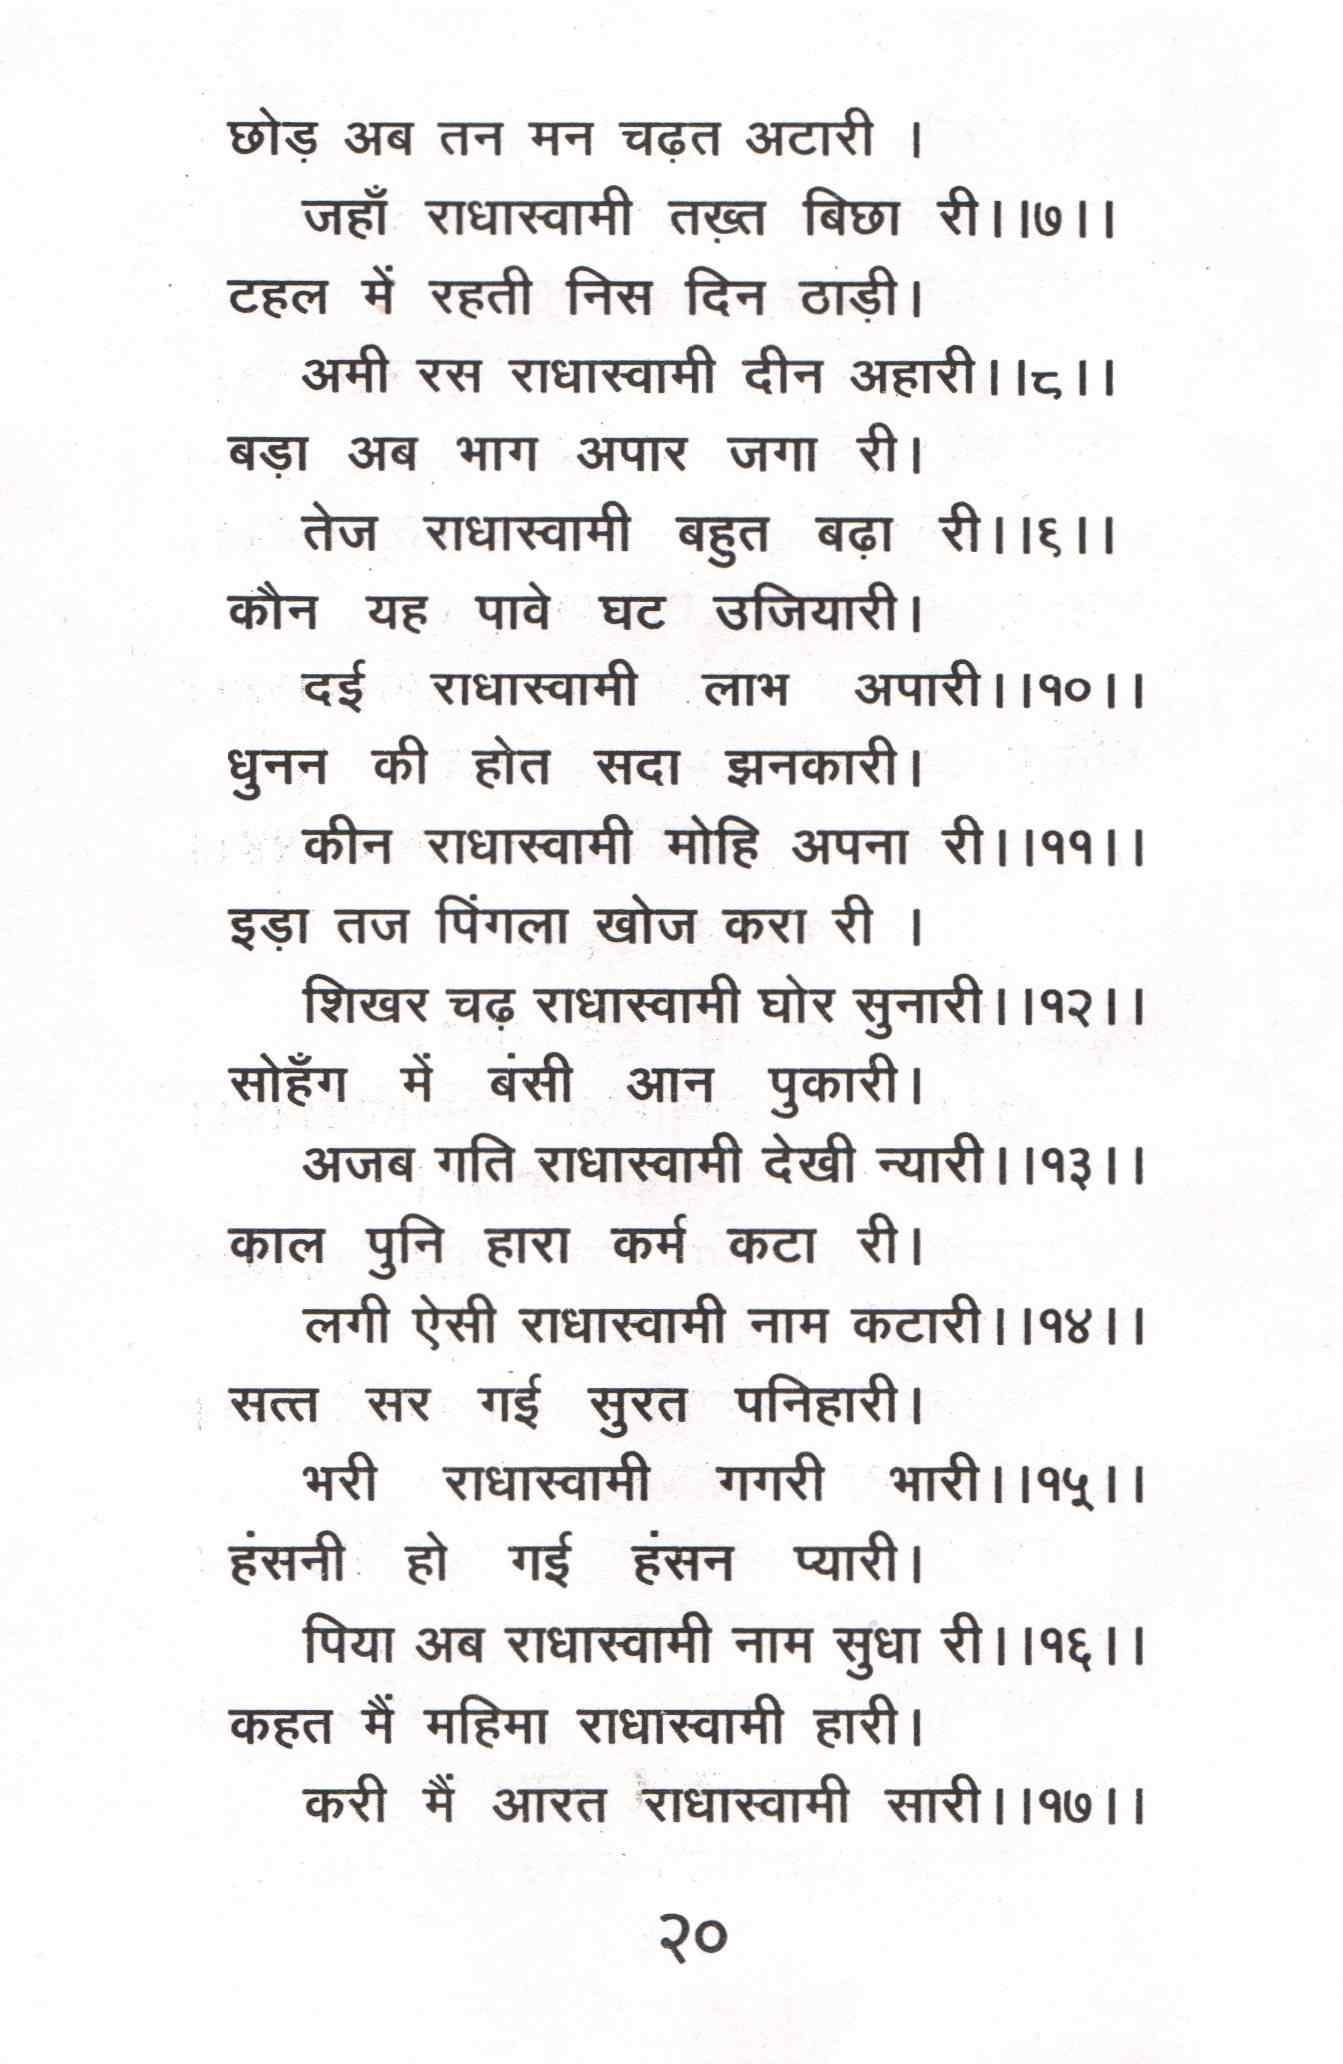 छोड़ अब तन मन चढ़त अटारी ।
जहाँ राधास्वामी तख़्त बिछा री।।७।।
टहल में रहती निस दिन ठाड़ी।
अमी रस राधास्वामी दीन अहारी।।८।।
बड़ा अब भाग अपार जगा री।
तेज राधास्वामी बहुत बढ़ा री।।६।।
कौन यह पावे घट उजियारी।
दई राधास्वामी लाभ अपारी।।१०।।
धुनन की होत सदा झनकारी।
कीन राधास्वामी मोहि अपना री।।११।।
इड़ा तज पिंगला खोज करा री ।
शिखर चढ़ राधास्वामी घोर सुनारी।।१२।।
सोहँग में बंसी आन पुकारी।
अजब गति राधास्वामी देखी न्यारी।।१३।।
काल पुनि हारा कर्म कटा री।
लगी ऐसी राधास्वामी नाम कटारी।।१४।।
सत्त सर गई सुरत पनिहारी।
भरी राधास्वामी गगरी भारी।।१५।।
हंसनी हो गई हंसन प्यारी।
पिया अब राधास्वामी नाम सुधा री।।१६।।
कहत मैं महिमा राधास्वामी हारी।
करी मैं आरत राधास्वामी सारी।।१७।।
२०